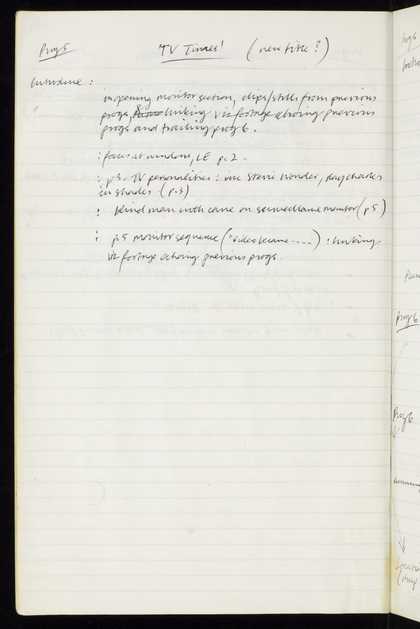 Prog 5 TV Times! (new title?)
Introduce :
in opening monitor section, clips/stills from previous
progs, linking viz footage echoing previous
progs and trailing prog 6.
: faces at window, LE p. 2.
: p3. TV personalities : use Stevie Wonder, Ray Charles
in shades (p.3)
: blind man with cane on surveillance monitor (p5)
: p.5 monitor sequence ("video became .....) : linking
viz footage echoing previous progs.
Prog 6
Prog 6